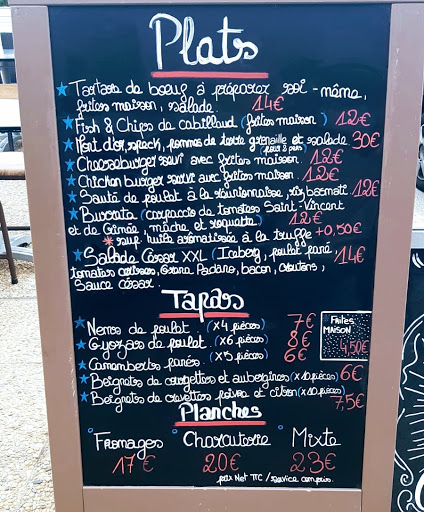 Plats
Tartare de boeuf à préparer soi-même,
frites maison, salade. 14€
Fish & Chips de cabillaud (frites maison) 12€
Mont d'or, speck, pommes de terre grenaille et salade 30€
pour 2 pers
Cheeseburger servi avec frites maison. 12€
Chicken burger servi avec frites maison. 12€
Sauté de poulet à la réunionnaise, riz basmati. 12€
Burrata (carpaccio de tomates Saint-Vincent
et de Crimée, mâche et roquette) 12€
* sup. huile aromatisée à la truffe +0,50€
Salade César XXL (Iceberg, poulet pané, 14€
tomates cerises, Grana Padano, bacon, croutons,
Sauce césar.
Tapas
Nems de poulet. (x4 pièces) 7€
Gyozas de poulet. (x6 pièces) 8€
Camemberts panés. (x5 pièces) 6€
Beignets de courgettes et aubergines (x10 pièces) 6€
Beignets de crevettes poivre et citron (x10 pièces) 7,5€
Frites
Maison
4,50€
Planches
Fromages Charcuterie Mixte
17€ 20€ 23€
prix Net TTC / service compris.